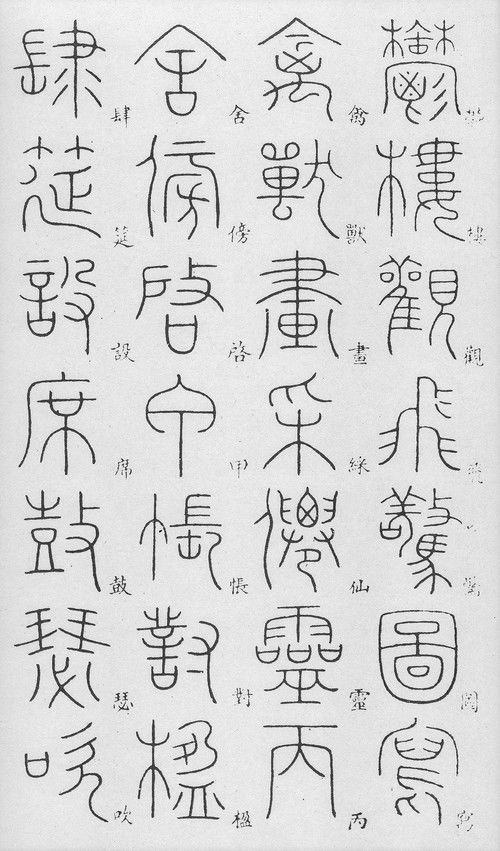 鬱樓觀飛驚圖寫
禽獸畫綵仙靈丙
舍傍啓甲帳對楹
肆筵設席鼓瑟吹